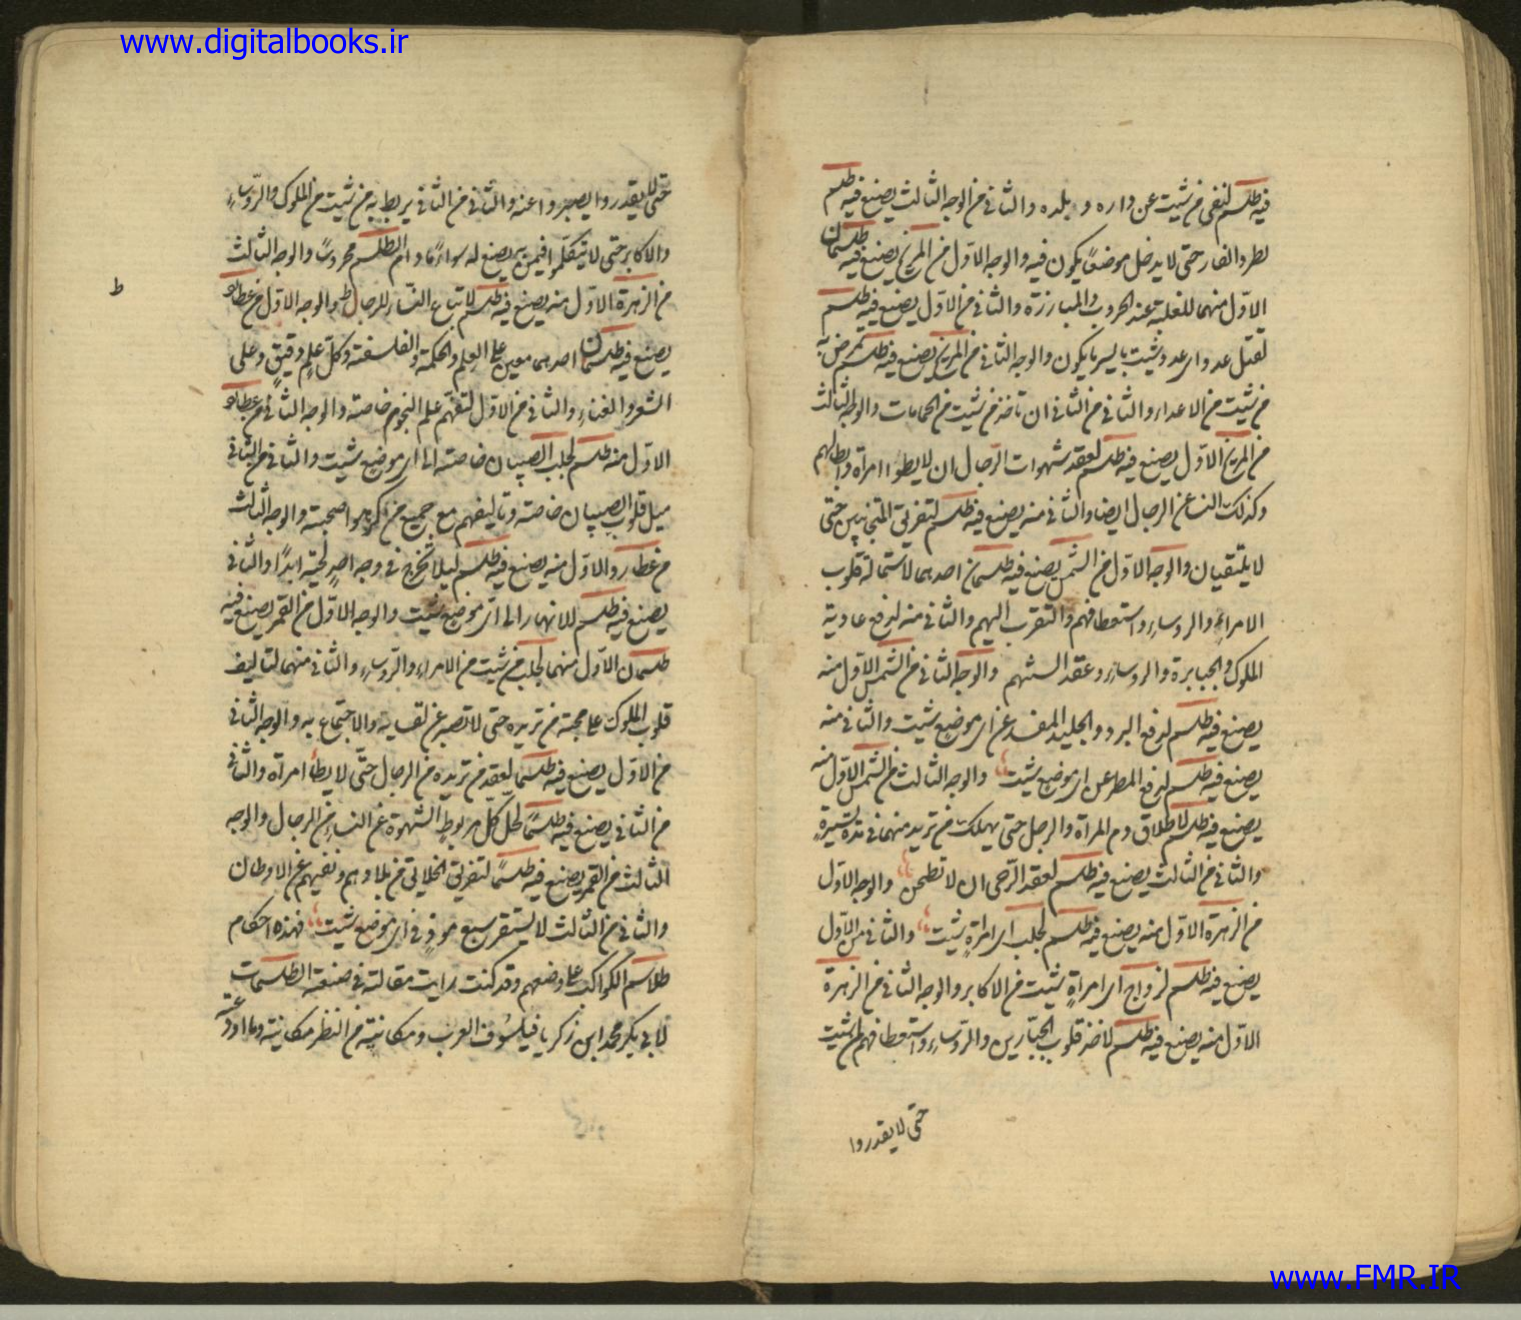 www.digitalbooks.ir
فيه طلسم لنفى من شيت عن داره و بلده والثانى من الوجه الثالث يصنع فيه طلسم
لطرد الفار حتى لا يدخل موضعًا يكون فيه والوجه الاوّل من المريخ يصنع فيه طلسمان
الاوّل منهما للغلبة عند الحروب والمبارزة والثانى من الاوّل يصنع فيه طلسم
لقتل عدو اى عدو شيت باليسر ما يكون والوجه الثانى من المريخ يصنع فيه طلسم تمرض به
من شيت من الاعداء والثانى من الثانى ان تاخذ من شيت من الحمامات والوجه الثالث
من المريخ الاوّل يصنع فيه طلسم لعقد شهوات الرجال ان لا يطوا امراة وابطالهم
وكذلك النسا عن الرجال ايضا والثانى منه يصنع فيه طلسم لتفريق المتجانبين حتى
لا يلتقيان والوجه الاوّل من الشمس يصنع فيه طلسمان احدهما لاستمالة قلوب
الامراء والروساء واستعطافهم والتقرب اليهم والثانى منه لدفع عادية
الملوك والجبابرة والروساء وعقد السنتهم والوجه الثانى من الشمس الاوّل منه
يصنع فيه طلسم لدفع البرد والجليد المفسد عن اى موضع شيت والثانى منه
يصنع فيه طلسم لدفع المطر عن اى موضع شيت والوجه الثالث من الشمس الاوّل منه
يصنع فيه طلسم لاطلاق دم المراة والرجل حتى يهلك من تريد منهما فى مدة يسيرة
والثانى من الثالث يصنع فيه طلسم لعقد الرّحى ان لا تطحن والوجه الاوّل
من الزهرة الاوّل منه يصنع فيه طلسم لجلب اى امراة شيت والثانى من الاوّل
يصنع فيه طلسم لزواج اى امراة شيت من الاكابر والوجه الثانى من الزهرة
الاوّل منه يصنع فيه طلسم لاخذ قلوب الجبّارين والروساء واستعطافهم لمن شيت
حتى لا يقدروا
حتى لا يقدروا يصبروا عنه والثانى من الثانى يربط به من شيت من الملوك والرّوساء
والاكابر حتى لا يتكلموا فيمن يصنع له سوا ما دام الطلسم محروسًا والوجه الثالث
من الزهرة الاوّل منه يصنع فيه طلسم لاتباع النساء للرجال والوجه الاوّل من عطارد
يصنع فيه طلسمان احدهما معين على العلم والحكمة والفلسفة وكل علم دقيق وعلى
الشعر والغناء والثانى من الاوّل لتفهم علم النجوم خاصة والوجه الثانى من عطارد
الاوّل منه طلسم لجلب الصبيان خاصة الى اى موضع شيت والثانى من الثانى
ميل قلوب الصبيان خاصة وتاليفهم مع جميع من كرهوا صحبته والوجه الثالث
من عطارد الاوّل منه يصنع فيه طلسم ليلا تخرج فى وجه احدٍ لحية ابدًا والثانى
يصنع فيه طلسم للانهار الى اى موضع شيت والوجه الاوّل من القمر يصنع فيه
طلسمان الاوّل منهما لجلب من شيت من الامراء والرّوساء والثانى منهما لتاليف
قلوب الملوك على محبة من تريده حتى لا تصبر عن لقايه والاجتماع به والوجه الثانى
من الاوّل يصنع فيه طلسمًا لعقد من تريده من الرجال حتّى لا يطأ امراة والثانى
من الثانى يصنع فيه طلسمًا لحل كل مربوط الشهوة عن النساء من الرجال والوجه
الثالث من القمر يصنع فيه طلسمًا لتفريق الخلايق من بلادهم ونفيهم عن الاوطان
والثانى من الثالث لا يستقر سبع موذٍ فى اى موضع شيت فهذه احكام
طلاسم الكواكب على اوضعهم وقد كنت رايت مقالة فى صنعة الطلسمات
لابى بكر محمد ابن زكريا فيلسوف العرب ومكانته من النظر مكانية وما اودعه
ط
www.FMR.IR